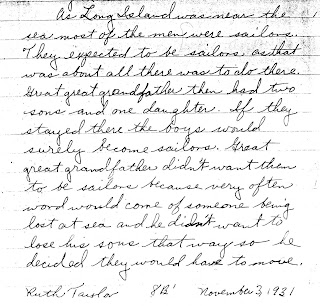 As Long Island was near the
sea most of the men were sailors.
They expected to be sailors as that
was about all there was to do there.
Great great grandfather then had two
sons and one daughter. If they
stayed there the boys would
surely become sailors. Great
great grandfather didn't want them
to be sailors because very often
word would come of someone being
lost at sea and he didn't want to
lose his sons that way so he
decided they would have to move.
Ruth Taylor 8B' November 3, 1931